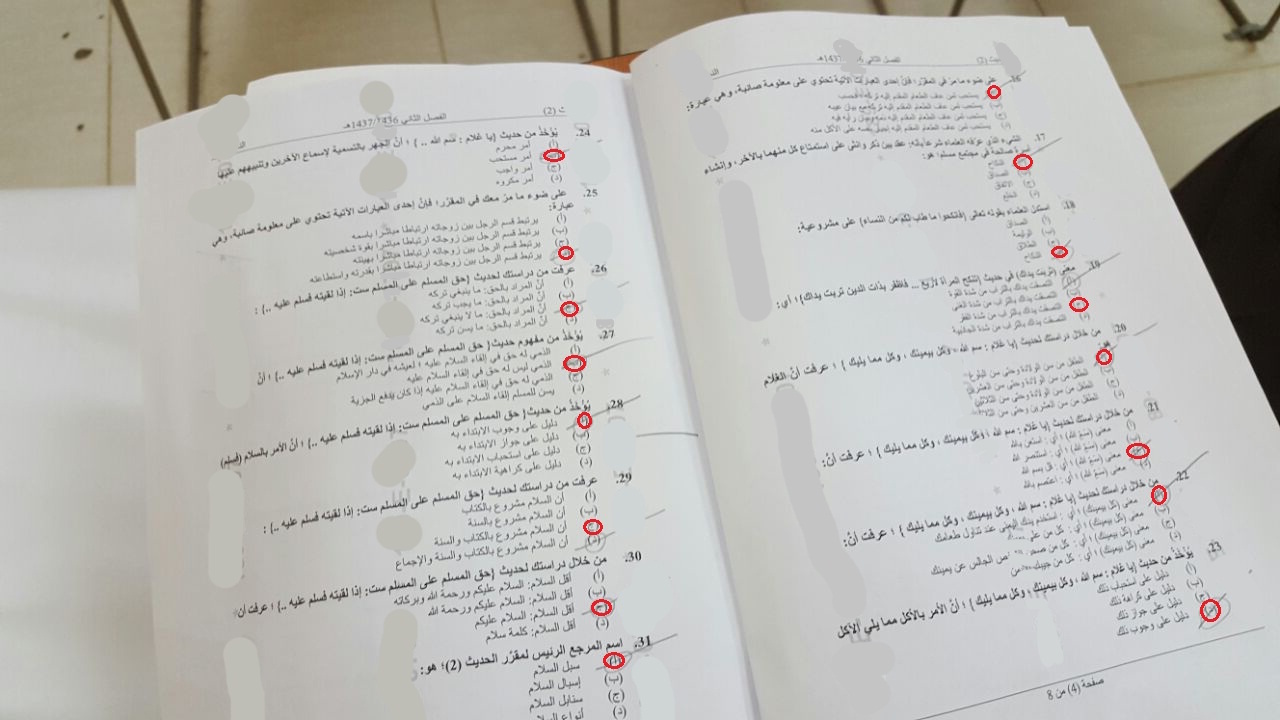 الفصل الثاني 1437هـ
16. على ضوء ما مرّ في المقرّر؛ فإنّ إحدى العبارات الآتية تحتوي على معلومة صائبة، وهي عبارة:
يستحب لمن عاف الطعام المقدم إليه تركه فحسب
(ب) يستحب لمن عاف الطعام المقدم إليه تركه مع بيان عيبه
(ج) يستحب لمن عاف الطعام المقدم إليه ذمه وبيان رأيه فيه
(د) يستحب لمن عاف الطعام المقدم إليه إجبار نفسه على الأكل منه
17. الشيء الذي عرّفه العلماء شرعا بأنه: عقد بين ذكر وأنثى على استمتاع كل منهما بالآخر، وإنشاء
أسرة صالحة في مجتمع مسلم؛ هو:
النكاح
الصداق
(ج) الاتفاق
(د) الخلع
18. استدل العلماء بقوله تعالى {فانكحوا ما طاب لكم من النساء} على مشروعية:
(أ) الصداق
(ب) الوليمة
(ج) الطلاق
النكاح
19. معنى (تربت يداك) في حديث {تنكح المرأة لأربع ... فاظفر بذات الدين تربت يداك}؛ أي:
(أ) التصقت يداك بالتراب من شدة القوة
(ب) التصقت يداك بالتراب من شدة الغنى
التصقت يداك بالتراب من شدة الفقر
(د) التصقت يداك بالتراب من شدة الجاذبية
20. من خلال دراستك لحديث {يا غلام : سم الله ، وكل بيمينك ، وكل مما يليك } ؛ عرفت أنّ الغلام
هو:
الطفل من سن الولادة وحتى سن البلوغ
الطفل من سن الولادة وحتى سن العشرين
(ج) الطفل من سن الولادة وحتى سن الثلاثين
(د) الطفل من سن العشرين وحتى سن
21. من خلال دراستك لحديث {يا غلام : سم الله ، وكل بيمينك ، وكل مما يليك } ؛ عرفت أنّ:
(أ) معنى (سَمِّ الله) ؛ أي : استعن بالله
(ب) معنى (سَمِّ الله) ؛ أي : استنصر الله
معنى (سَمِّ الله) ؛ أي : قل بسم الله
(د) معنى (سَمِّ الله) ؛ أي : اعتصم بالله
22. من خلال دراستك لحديث {يا غلام : سم الله ، وكل بيمينك ، وكل مما يليك } ؛ عرفت أنّ:
معنى (كل بيمينك) ؛ أي : استخدم يدك اليمنى عند تناول طعامك
(ب) معنى (كل بيمينك) ؛ أي : كل من على
(ج) معنى (كل بيمينك) ؛ أي : كل من صحن الجالس عن يمينك
(د) معنى (كل بيمينك) ؛ أي : كل من جيبك
23. يُؤخذ من حديث {يا غلام : سم الله ، وكل بيمينك ، وكل مما يليك } ؛ أنّ الأمر بالأكل مما يلي الآكل
(أ) دليل على استحباب ذلك
(ب) دليل على كراهة ذلك
(ج) دليل على جواز ذلك
دليل على وجوب ذلك
صفحة (4) من 8
(2)
الفصل الثاني 1437/1436هـ
24. يُؤخذُ من حديث {يا غلام : سم الله .. } ؛ أنّ الجهر بالتسمية لإسماع الآخرين وتنبيههم عليها
(أ) أمر محرم
أمر مستحب
(ج) أمر واجب
(د) أمر مكروه
25. على ضوء ما مرّ معك في المقرّر؛ فإنّ إحدى العبارات الآتية تحتوي على معلومة صائبة، وهي
عبارة:
(أ) يرتبط قسم الرجل بين زوجاته ارتباطا مباشرا باسمه
(ب) يرتبط قسم الرجل بين زوجاته ارتباطا مباشرا بقوة شخصيته
(ج) يرتبط قسم الرجل بين زوجاته ارتباطا مباشرا بهيئته
يرتبط قسم الرجل بين زوجاته ارتباطا مباشرا بقدرته واستطاعته
26. عرفت من دراستك لحديث {حق المسلم على المسلم ست: إذا لقيته فسلم عليه ..} :
(أ) أنّ المراد بالحق: ما ينبغي تركه
(ب) أنّ المراد بالحق: ما يجب تركه
أنّ المراد بالحق: ما لا ينبغي تركه
(د) أنّ المراد بالحق: ما يسن تركه
27. يُؤخذُ من مفهوم حديث { حق المسلم على المسلم ست: إذا لقيته فسلم عليه ..} ؛ أنّ
(أ) الذمي له حق في إلقاء السلام عليه ؛ لعيشه في دار الإسلام
الذمي ليس له حق في إلقاء السلام عليه
(ج) الذمي له حق في إلقاء السلام عليه إذا كان يدفع الجزية
(د) يسن للمسلم إلقاء السلام على الذمي
28. يُؤخذُ من حديث { حق المسلم على المسلم ست: إذا لقيته فسلم عليه ..} ؛ أنّ الأمر بالسلام (فسلم)
دليل على وجوب الابتداء به
(ب) دليل على جواز الابتداء به
(ج) دليل على استحباب الابتداء به
(د) دليل على كراهية الابتداء به
29. عرفت من دراستك لحديث {حق المسلم على المسلم ست: إذا لقيته فسلم عليه ..} :
(أ) أن السلام مشروع بالكتاب
(ب) أن السلام مشروع بالسنة
أن السلام مشروع بالكتاب والسنة
(د) أن السلام مشروع بالكتاب والسنة والإجماع
30. من خلال دراستك لحديث {حق المسلم على المسلم ست: إذا لقيته فسلم عليه ..} ؛ عرفت أن
(أ) أقل السلام: السلام عليكم ورحمة الله وبركاته
(ب) أقل السلام: السلام عليكم ورحمة الله
أقل السلام: السلام عليكم
(د) أقل السلام: كلمة سلام
31. اسم المرجع الرئيس لمقرّر الحديث (2)؛ هو:
سبل السلام
(ب) إسبال السلام
(ج) سنابل السلام
(د) أنواع السلام